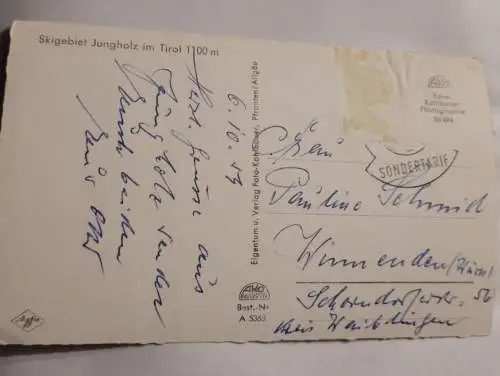 Skigebiet Jungholz im Tirol 1100 m
6.10.59
Herzl. Grüsse aus
Jungholz senden
Euch beiden
Eigentum u. Verlag Foto-Kohlbauer, Pfronten/Allgäu
AKO
Best.-Nr
A 5363
Agfa
AKO
Foto-
Kohlbauer
Photographie
SONDERTARIF
Frau
Pauline Schmid
Winnenden/Württ
Schorndorferstr. 56
Kreis Waiblingen